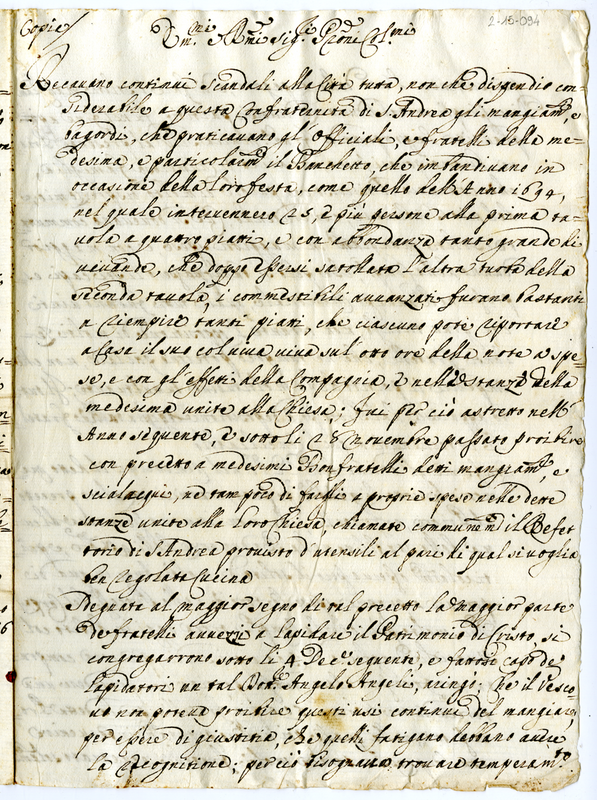 Copia/
2-15-094
Em.mi R.mi Sig.ri P.roni Col.mi
Recavano continui scandali alla Cità tutta, non che dispendio con=
siderabile a questa Confraternità di S. Andrea gli mangiam.ti, e
bagordi, che praticavano gl'Officiali, e fratelli della me=
desima, e particolarm.e il Banchetto, che imbandivano in
occasione della loro festa, come quello dell'Anno 1694,
nel quale intervennero 25, e più persone alla prima ta=
vola a quattro piatti, e con abbondanza tanto grande di
vivande, che doppo essersi satollata l'altra turba della
seconda tavola, i commestibili avvanzati furono bastanti
a riempire tanti piatti, che ciascuno potè riportare
a Casa il suo col viva viva sul'otto ore della note a spe=
se, e con gl'effetti della Compagnia, e nelle stanze della
medesima unite alla Chiesa; fui per ciò astretto nell'
Anno seguente, e sotto li 28 Novembre passato proibire
con precetto a medesimi Confratelli detti mangiam.ti, e
scialacqui, ne tam poco di farsi a proprie spese nelle dette
stanze unite alla loro Chiesa, chiamate communem.e il Refet
torio di S. Andrea provisto d'utensili al pari di qual si voglia
ben regolata Cucina
Segnata al maggior segno di tal precetto la maggior parte
de fratelli avvezzi a lapidare il Patrimonio di Cristo, si
congregarrono sotto li 4 Dec.e sequente, e fattosi capo de
lapidatori un tal Dott.e Angelo Angeli, aringò; che il Vesco
vo non poteva proibire questi usi continui del mangiare,
per essere di giustitia, che quelli fatigano debbano avere
la recognitione; per ciò bisognava trovare temperam.to